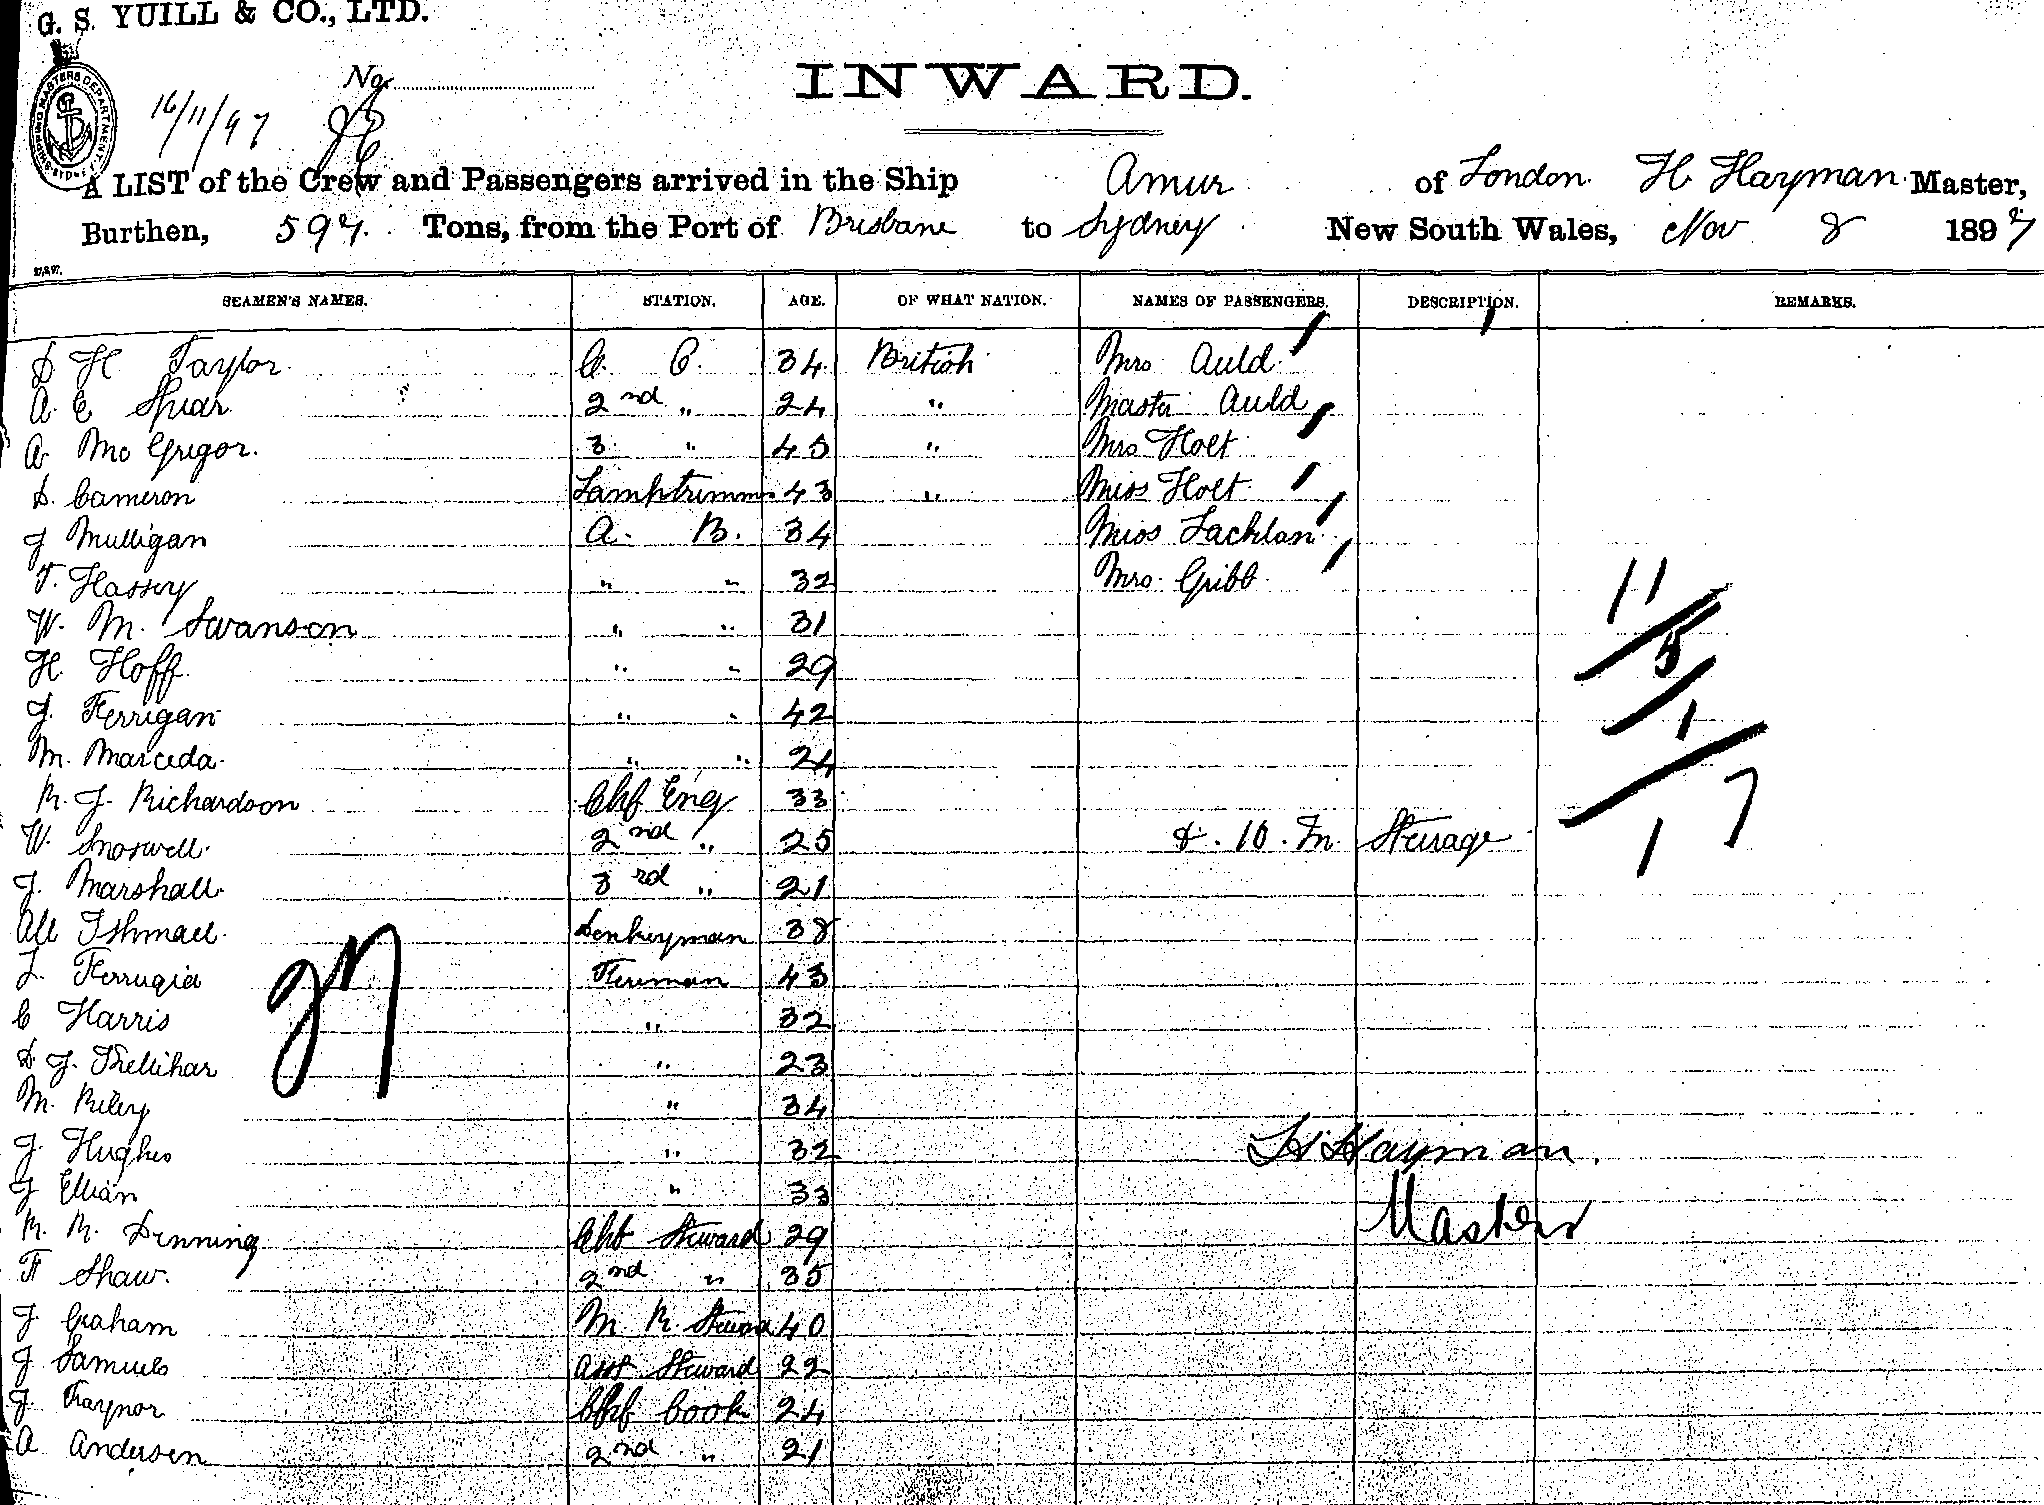 G. S. YUILL & CO., LTD.
No.
16/11/97
INWARD.
A LIST of the Crew and Passengers arrived in the Ship Amur of London. H. Hayman Master,
Burthen, 597. Tons, from the Port of Brisbane to Sydney New South Wales, Nov 8 1897
SEAMEN'S NAMES. STATION. AGE. OF WHAT NATION. NAMES OF PASSENGERS. DESCRIPTION. REMARKS.
D H Taylor 34 British Mrs Auld
A E Spear 2nd " 24 " Master Auld
A McGrigor. 3 " 45 " Mrs Holt
D. Cameron Lamptrimmer 43 " Miss Holt
J Mulligan A. B. 34 Miss Lachlan
T. Hassey " " 32 Mrs Gibb
W. M. Swanson " " 31
H. Hoff " " 29
J. Ferrigan " " 42
M. Marceda " " 24
R. J. Richardson Chf Eng 33
W. Snoswell 2nd " 25 & 10. In Steerage
J. Marshall 3rd " 21
Ali Ishmael Donkeyman 38
L. Ferrugia Fireman 43
C Harris " 32
D J. Trellihar " 23
M. Riley " 34
J. Hughes " 32
J Ellian " 33
R. R. Denning Chf Steward 29
F Shaw. 2nd " 35
J. Graham M. R. Steward 40
J Samuels Asst Steward 22
J. Traynor Chf Cook 24
A Andersen 2nd " 21
11
5
1
17
H Hayman.
Master